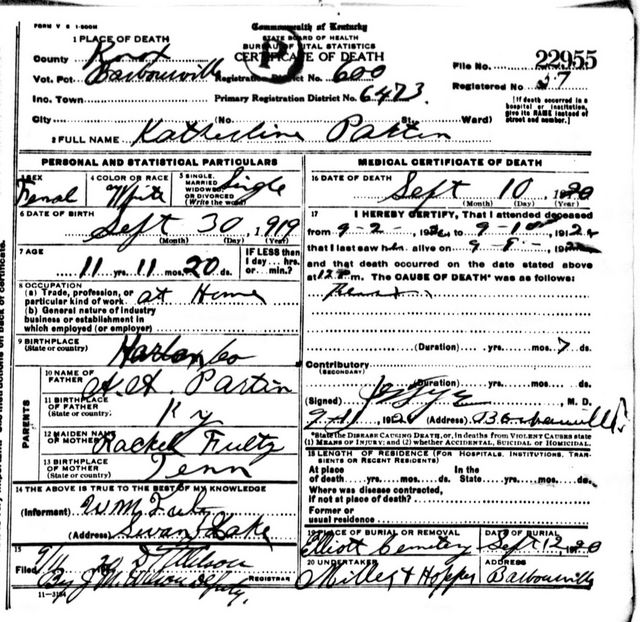 FORM V S 1-500M
Commonwealth of Kentucky
STATE BOARD OF HEALTH
BUREAU VITAL STATISTICS
CERTIFICATE OF DEATH
P
1 PLACE OF DEATH
County Knox
Vot. Pct. Barbourville Registration District No. 600
Inc. Town Primary Registration District No. 6473
City (No. St., Ward)
File No. 22955
Registered No. 57
[If death occurred in a hospital or institution, give its NAME instead of street and number.]
2 FULL NAME Katherline Partin
PERSONAL AND STATISTICAL PARTICULARS
3 SEX Femal
4 COLOR OR RACE White
5 SINGLE, MARRIED WIDOWED OR DIVORCED (Write the word) Single
6 DATE OF BIRTH
Sept 30, 1919
(Month) (Day) (Year)
7 AGE
11 yrs. 11 mos. 20 ds.
IF LESS than 1 day, hrs. or min.?
8 OCCUPATION
(a) Trade, profession, or particular kind of work at Home
(b) General nature of industry business or establishment in which employed (or employer)
9 BIRTHPLACE
(State or country) Harlan Co
PARENTS
10 NAME OF FATHER A. A. Partin
11 BIRTHPLACE OF FATHER (State or country) Ky
12 MAIDEN NAME OF MOTHER Rachel Fultz
13 BIRTHPLACE OF MOTHER (State or country) Tenn
14 THE ABOVE IS TRUE TO THE BEST OF MY KNOWLEDGE
(Informent) W M
(Address) Swan Lake
15
Filed 20
By J M Wilson Deputy REGISTRAR
11-3184
MEDICAL CERTIFICATE OF DEATH
16 DATE OF DEATH
Sept 10, 1920
(Month) (Day) (Year)
17 I HEREBY CERTIFY, That I attended deceased
from 9-2-
that I last saw h alive on
and that death occurred on the date stated above
at 12 m. The CAUSE OF DEATH* was as follows:
(Duration) yrs. mos. 7 ds.
Contributory
(SECONDARY)
(Duration) yrs. mos. ds.
(Signed) M. D.
(Address) Barbourville
*State the DISEASE CAUSING DEATH, or, in deaths from VIOLENT CAUSES state (1) MEANS OF INJURY; and (2) whether ACCIDENTAL, SUICIDAL or HOMICIDAL.
18 LENGTH OF RESIDENCE (FOR HOSPITALS, INSTITUTIONS, TRANSIENTS OR RECENT RESIDENTS)
At place of death yrs. mos. ds. In the State yrs. mos. ds.
Where was disease contracted, if not at place of death?
Former or usual residence
19 PLACE OF BURIAL OR REMOVAL
Elliott Cemetery
DATE OF BURIAL
Sept 12, 1920
20 UNDERTAKER
Miller & Hopper
ADDRESS
Barbourville